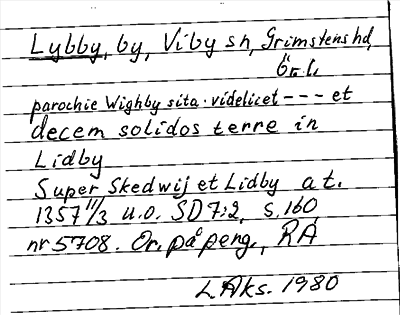 Lybby, by, Viby sn, Grimstens hd,
Ör. l.
parochie Wighby sita. videlicet --- et
decem solidos terre in
Lidby
Super Skedwij et Lidby at.
1357 11/3 u.o. SD 7:2, s. 160
nr 5708. Or. på perg., RA
L Aks. 1980